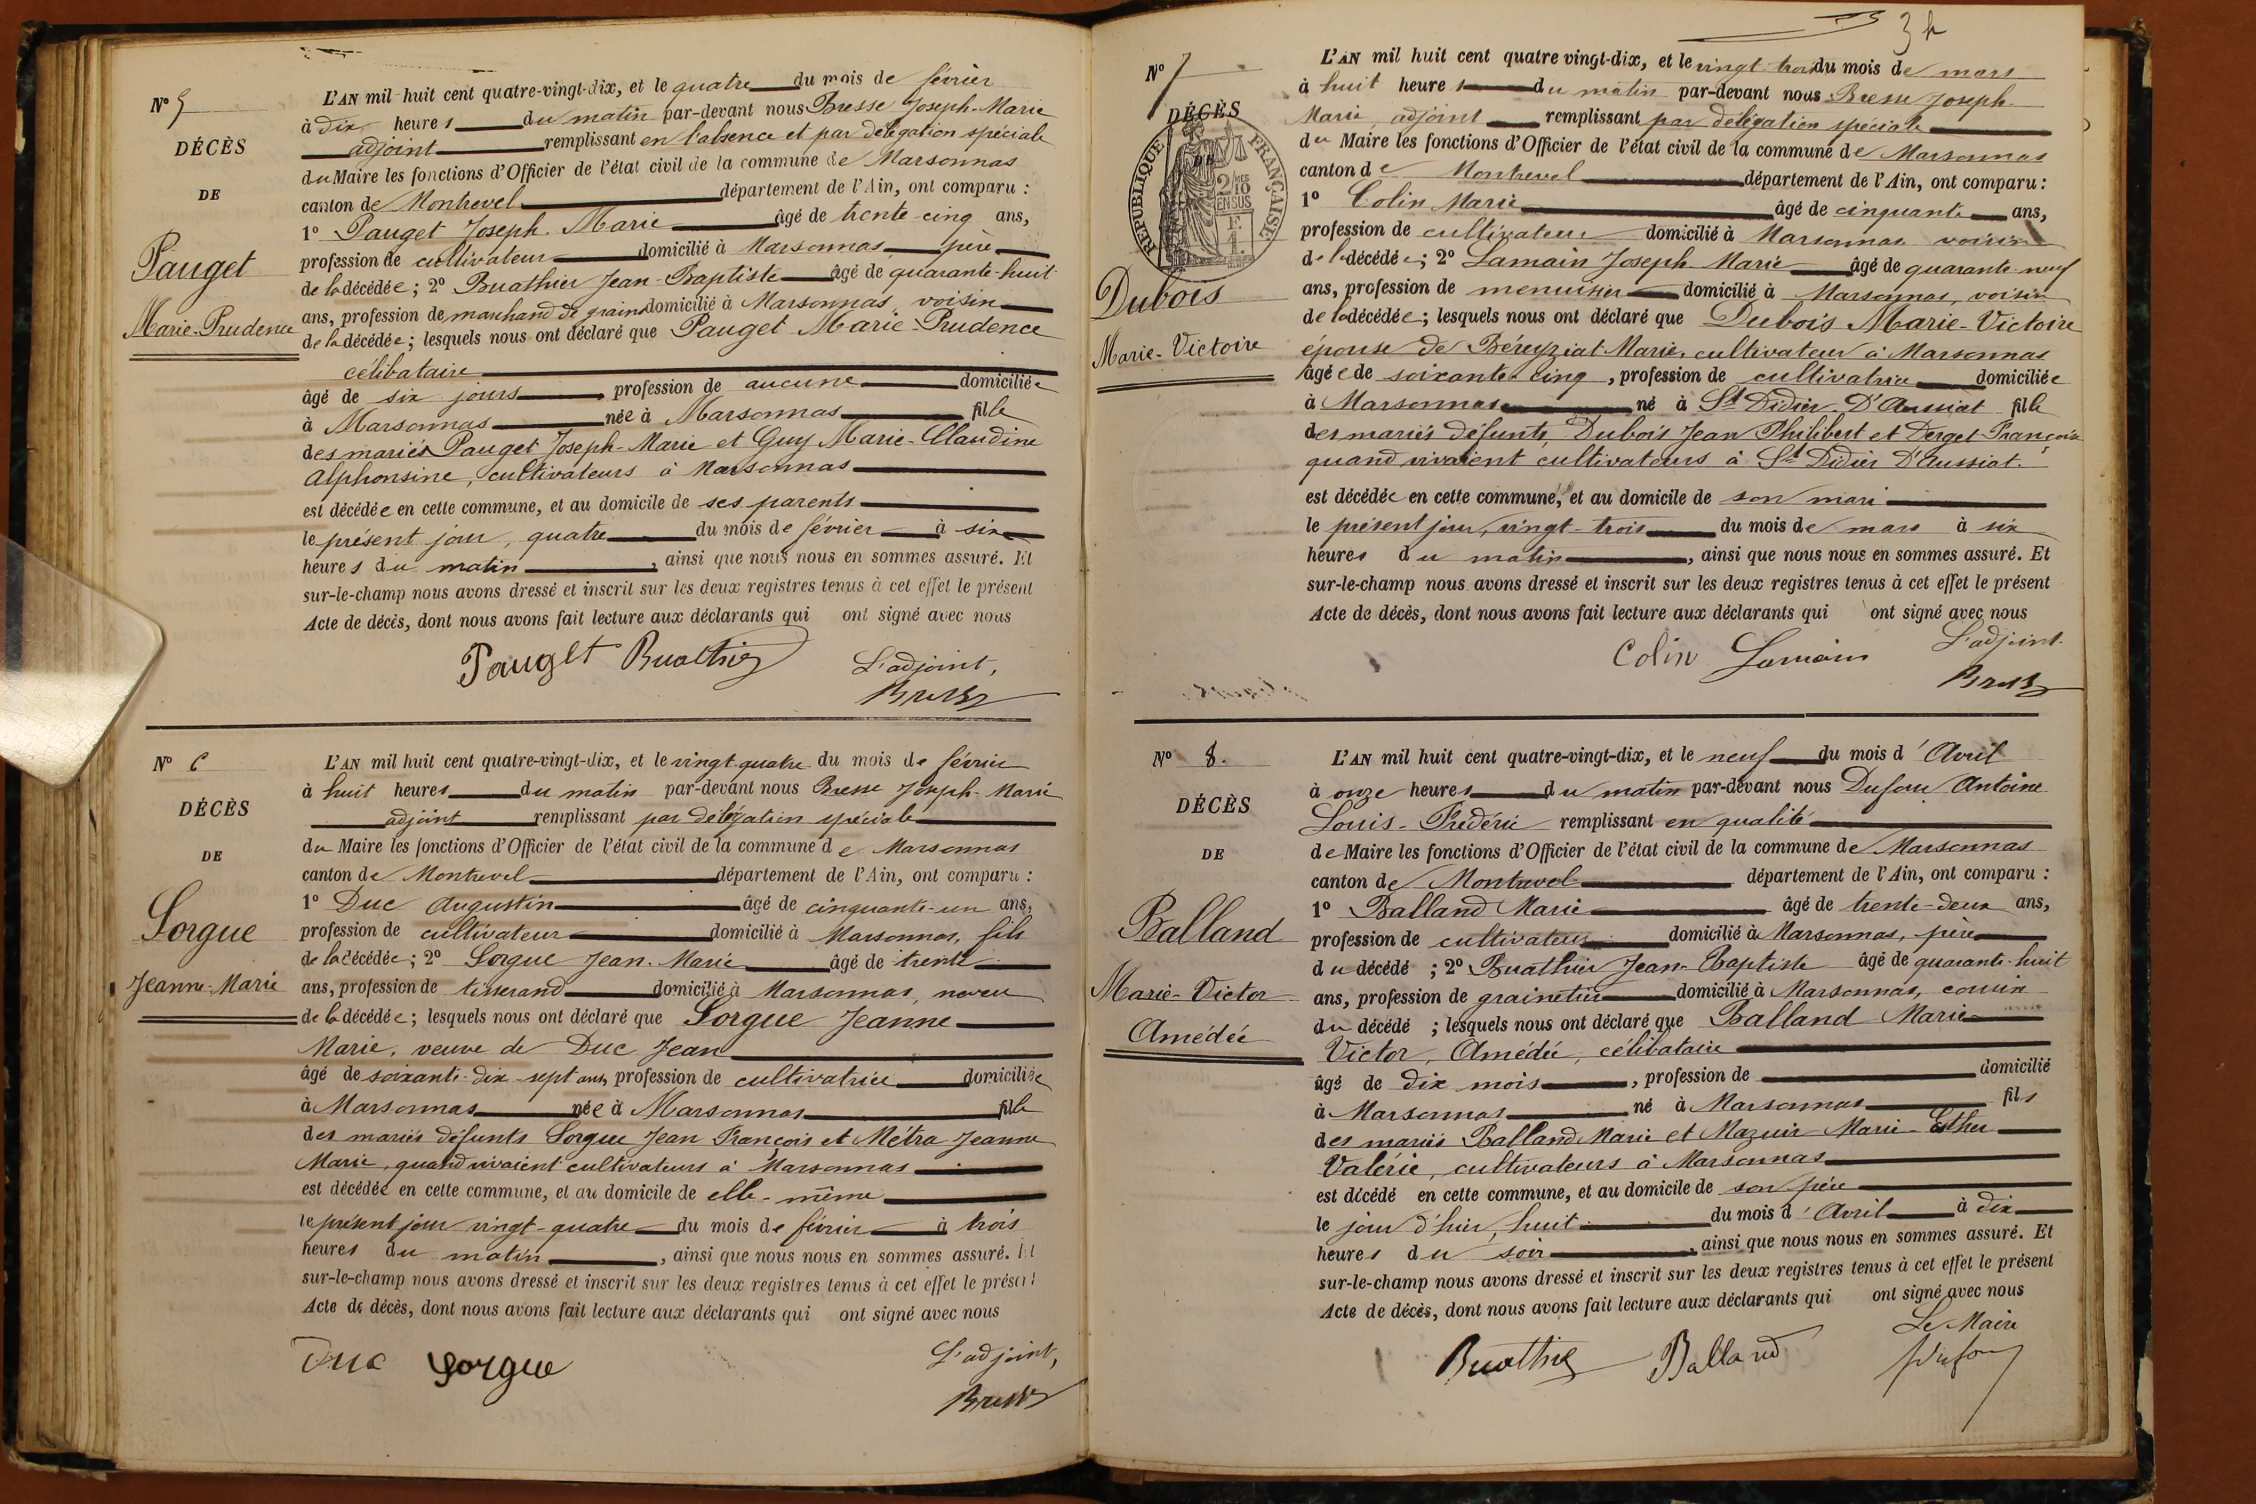 N° 5
DÉCÈS
DE
Pauget
Marie-Prudence
L'AN mil huit cent quatre-vingt-dix, et le quatre du mois de février
à dix heures du matin par-devant nous Bresse Joseph-Marie
adjoint remplissant en l'absence et par délégation spéciale
du Maire les fonctions d'Officier de l'état civil de la commune de Marsonnas
canton de Montrevel département de l'Ain, ont comparu :
1° Pauget Joseph-Marie âgé de trente-cinq ans,
profession de cultivateur domicilié à Marsonnas, père
de la décédée ; 2° Buathier Jean-Baptiste âgé de quarante-huit
ans, profession de marchand de grains domicilié à Marsonnas, voisin
de la décédée ; lesquels nous ont déclaré que Pauget Marie-Prudence
célibataire
âgé de six jours, profession de aucune domiciliée
à Marsonnas née à Marsonnas fille
des mariés Pauget Joseph-Marie et Guy Marie-Claudine
Alphonsine, cultivateurs à Marsonnas
est décédée en cette commune, et au domicile de ses parents
le présent jour, quatre du mois de février à six
heures du matin, ainsi que nous nous en sommes assuré. Et
sur-le-champ nous avons dressé et inscrit sur les deux registres tenus à cet effet le présent
Acte de décès, dont nous avons fait lecture aux déclarants qui ont signé avec nous
Pauget Buathier L'adjoint,
Bresse
N° 6
DÉCÈS
DE
Sorgue
Jeanne-Marie
L'AN mil huit cent quatre-vingt-dix, et le vingt-quatre du mois de février
à huit heures du matin par-devant nous Bresse Joseph-Marie
adjoint remplissant par délégation spéciale
du Maire les fonctions d'Officier de l'état civil de la commune de Marsonnas
canton de Montrevel département de l'Ain, ont comparu :
1° Duc Augustin âgé de cinquante-un ans,
profession de cultivateur domicilié à Marsonnas, fils
de la décédée ; 2° Sorgue Jean-Marie âgé de trente
ans, profession de tisserand domicilié à Marsonnas, neveu
de la décédée ; lesquels nous ont déclaré que Sorgue Jeanne
Marie, veuve de Duc Jean
âgé de soixante-dix-sept ans, profession de cultivatrice domiciliée
à Marsonnas née à Marsonnas fille
des mariés défunts Sorgue Jean François et Métra Jeanne
Marie, quand vivaient cultivateurs à Marsonnas
est décédée en cette commune, et au domicile de elle-même
le présent jour vingt-quatre du mois de février à trois
heures du matin, ainsi que nous nous en sommes assuré. Et
sur-le-champ nous avons dressé et inscrit sur les deux registres tenus à cet effet le présent
Acte de décès, dont nous avons fait lecture aux déclarants qui ont signé avec nous
Duc Sorgue L'adjoint,
Bresse
N° 7
DÉCÈS
DE
RÉPUBLIQUE FRANÇAISE
2/10 MES EN SUS
Dubois
Marie-Victoire
L'AN mil huit cent quatre vingt-dix, et le vingt-trois du mois de mars
à huit heures du matin par-devant nous Bresse Joseph-
Marie, adjoint remplissant par délégation spéciale
du Maire les fonctions d'Officier de l'état civil de la commune de Marsonnas
canton de Montrevel département de l'Ain, ont comparu :
1° Colin Marie âgé de cinquante ans,
profession de cultivateur domicilié à Marsonnas voisin
de la décédée ; 2° Lamain Joseph Marie âgé de quarante-neuf
ans, profession de menuisier domicilié à Marsonnas, voisin
de la décédée ; lesquels nous ont déclaré que Dubois Marie-Victoire
épouse de Béreyziat Marie, cultivateur à Marsonnas
âgée de soixante-cinq, profession de cultivatrice domiciliée
à Marsonnas né à St Didier-D'Aussiat fille
des mariés défunts, Dubois Jean Philibert et Derget Françoise
quand vivaient cultivateurs à St Didier D'Aussiat.
est décédée en cette commune, et au domicile de son mari
le présent jour, vingt-trois du mois de mars à six
heures du matin, ainsi que nous nous en sommes assuré. Et
sur-le-champ nous avons dressé et inscrit sur les deux registres tenus à cet effet le présent
Acte de décès, dont nous avons fait lecture aux déclarants qui ont signé avec nous
Colin Lamain L'adjoint.
Bresse
N° 8.
DÉCÈS
DE
Balland
Marie-Victor
Amédée
L'AN mil huit cent quatre-vingt-dix, et le neuf du mois d'Avril
à onze heures du matin par-devant nous Dufour Antoine
Louis-Frédéric remplissant en qualité
de Maire les fonctions d'Officier de l'état civil de la commune de Marsonnas
canton de Montrevel département de l'Ain, ont comparu :
1° Balland Marie âgé de trente-deux ans,
profession de cultivateur domicilié à Marsonnas, père
du décédé ; 2° Buathier Jean-Baptiste âgé de quarante-huit
ans, profession de grainetier domicilié à Marsonnas, cousin
du décédé ; lesquels nous ont déclaré que Balland Marie
Victor, Amédée, célibataire
âgé de dix mois, profession de domicilié
à Marsonnas né à Marsonnas fils
des mariés Balland Marie et Mazuir Marie-Esther
Valérie, cultivateurs à Marsonnas
est décédé en cette commune, et au domicile de son père
le jour d'hier, huit du mois d'Avril à dix
heures du soir, ainsi que nous nous en sommes assuré. Et
sur-le-champ nous avons dressé et inscrit sur les deux registres tenus à cet effet le présent
Acte de décès, dont nous avons fait lecture aux déclarants qui ont signé avec nous
Buathier Balland Le Maire
Dufour